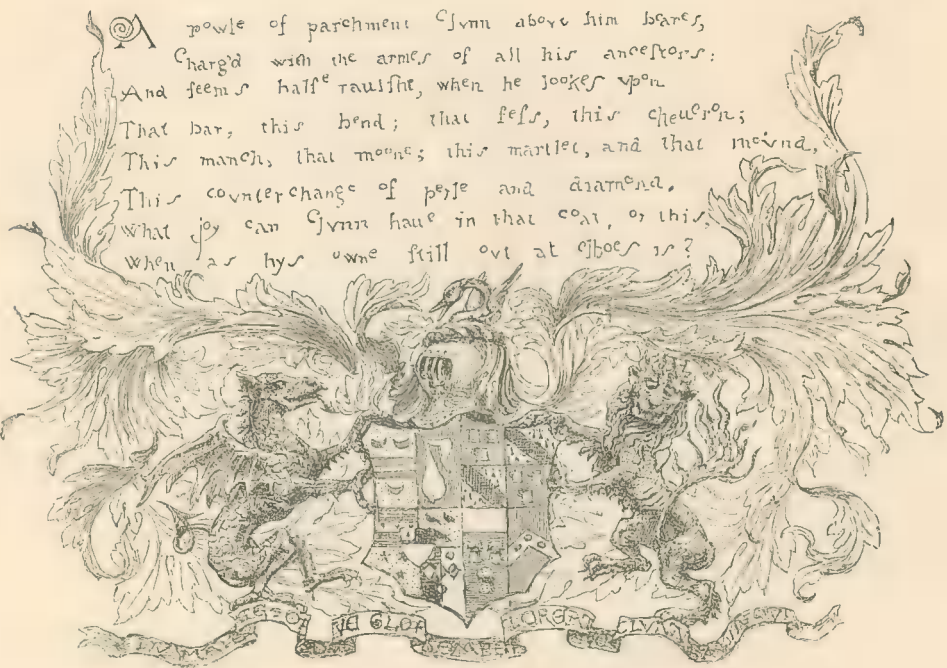 A rowle of parchment Clvnn above him beares,
Charg'd with the armes of all his anceſtors:
And ſeems halfe rauiſht, when he lookes vpon
That bar, this bend; that feſs, this cheueron;
This manch, that moone; this martlet, and that mound,
This covnterchange of perle and diamond.
What joy can Clvnn haue in that coat, or this,
When as hys owne ſtill ovt at elboes is?